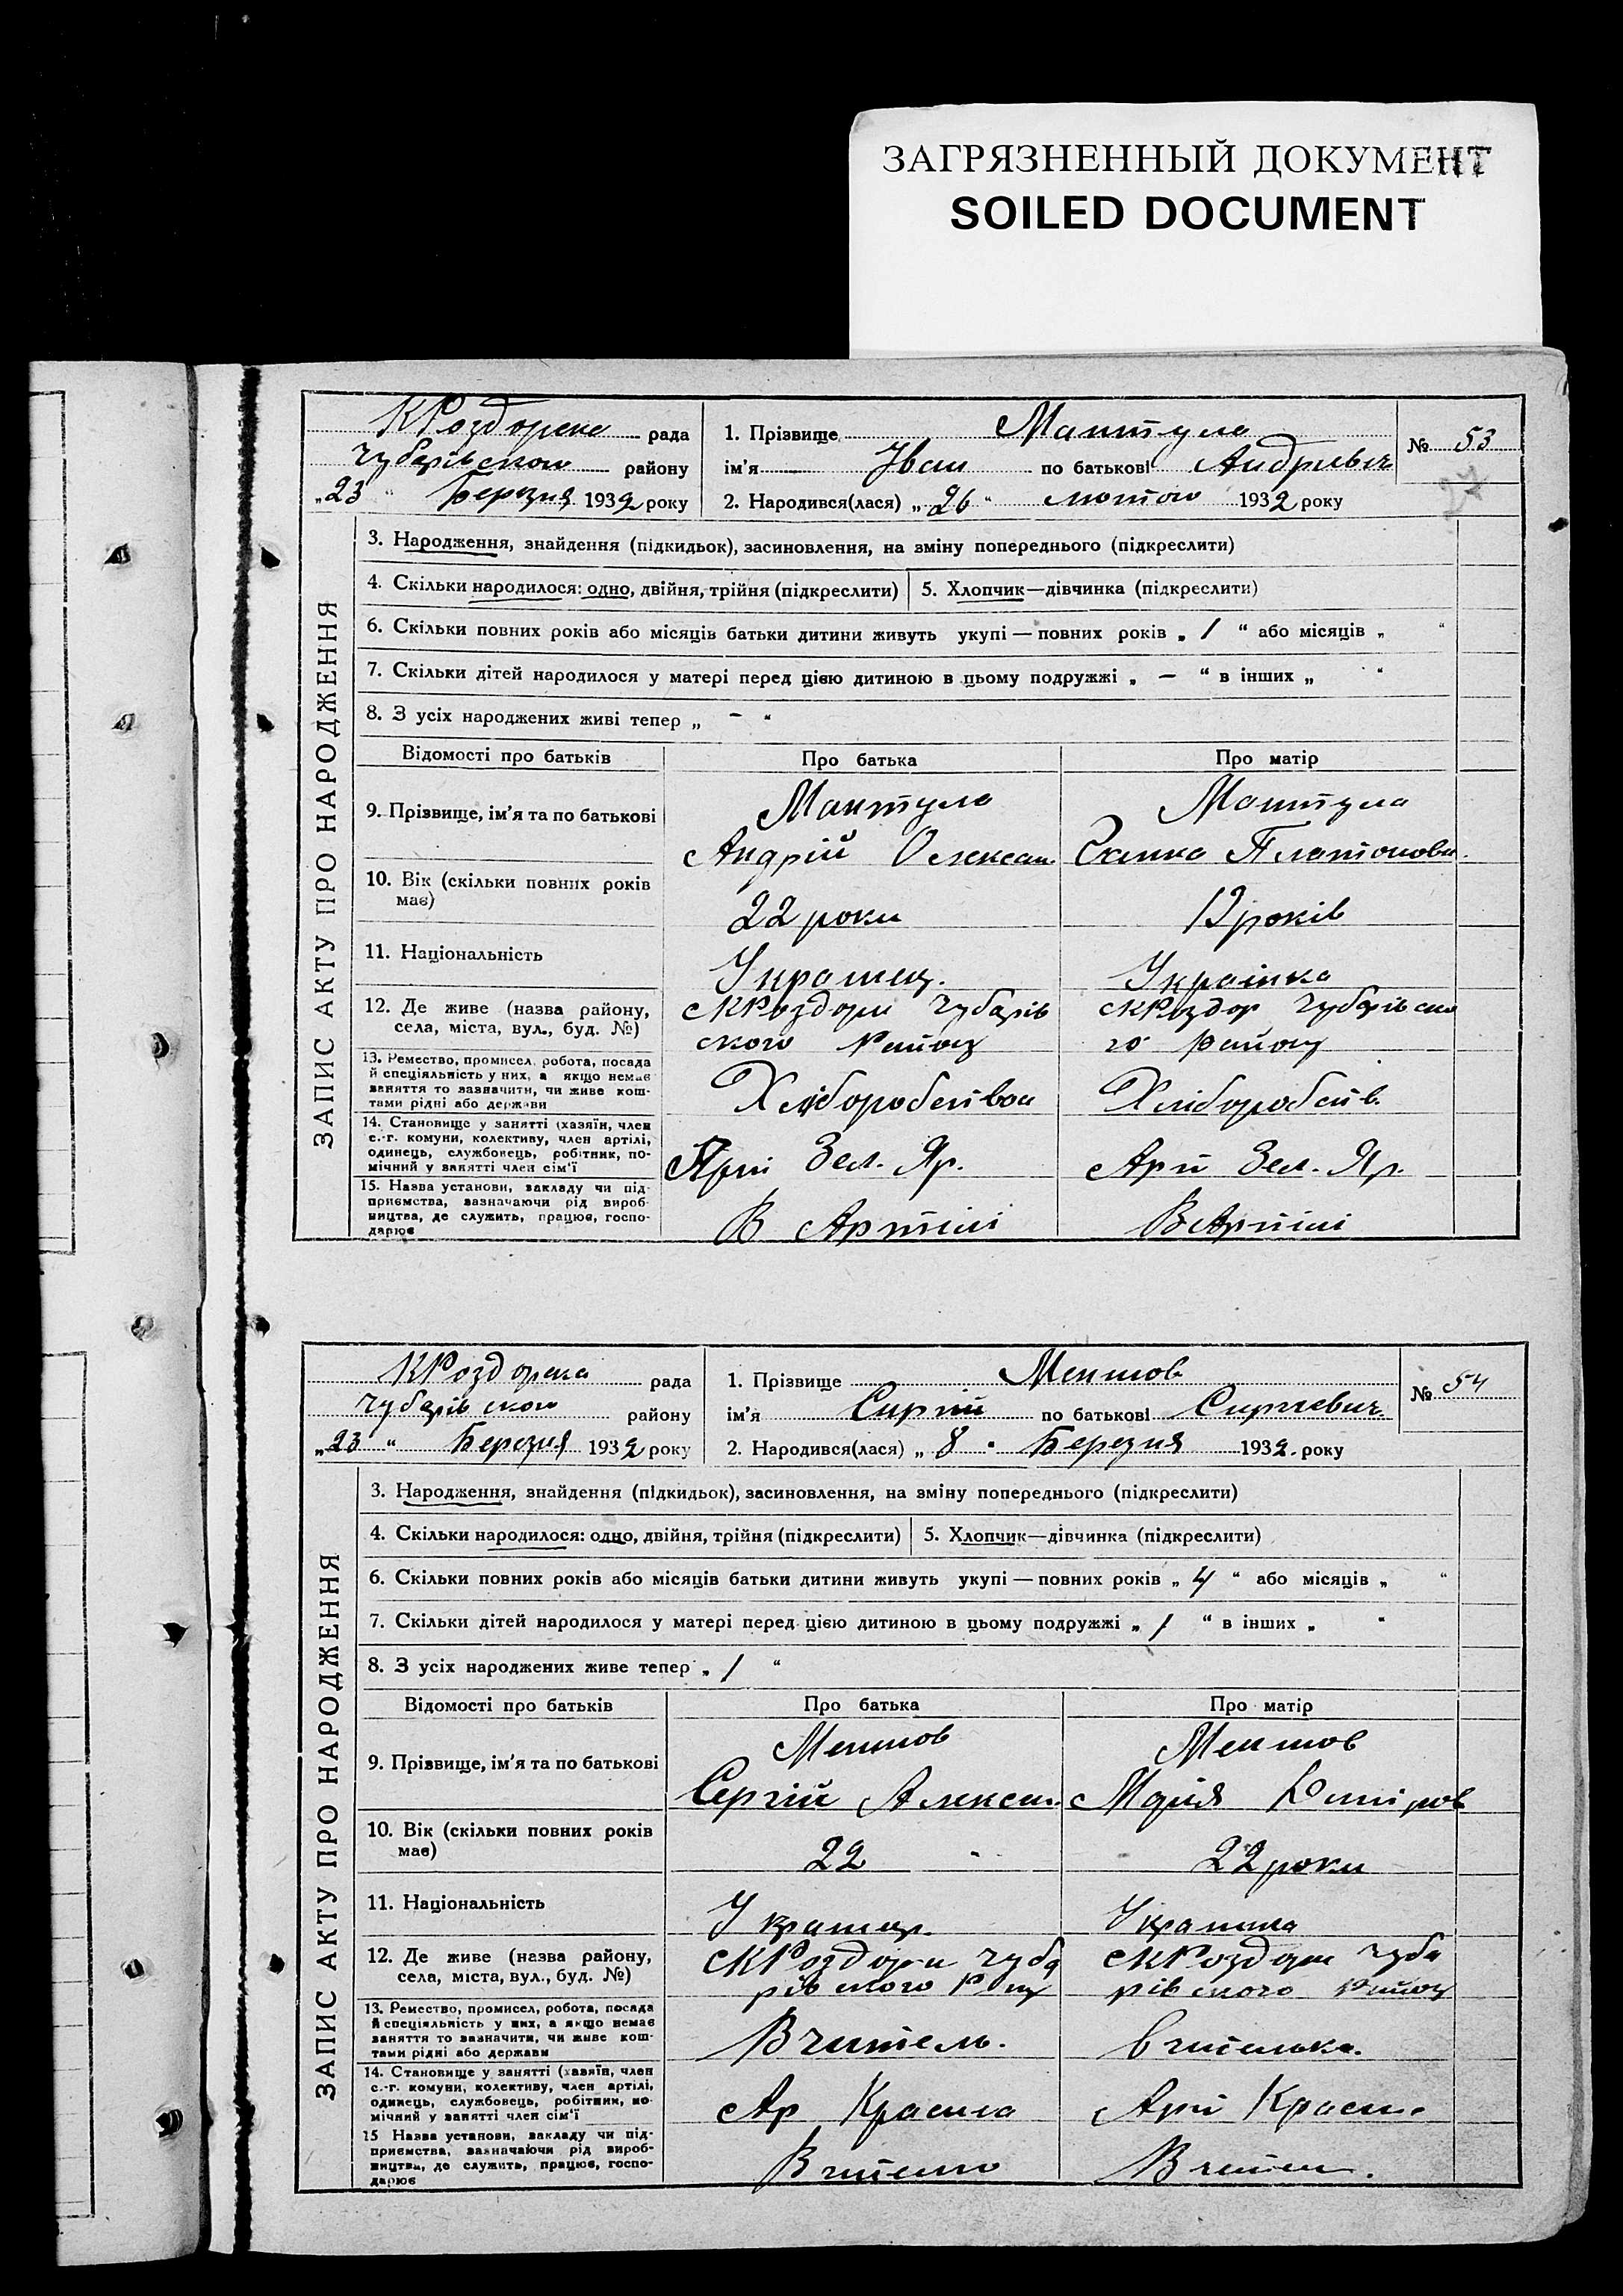 ЗАГРЯЗНЕННЫЙ ДОКУМЕНТ
SOILED DOCUMENT
ЗАПИС АКТУ ПРО НАРОДЖЕННЯ
КРоздорська рада
Чубарівського району
„23“ Березня 1932 року
1. Прізвище Мантула
ім'я Іван по батькові Андрієвич
№ 53
27
2. Народився(лася) „26“ лютого 1932 року
3. Народження, знайдення (підкидьок), засиновлення, на зміну попереднього (підкреслити)
4. Скільки народилося: одно, двійня, трійня (підкреслити) 5. Хлопчик—дівчинка (підкреслити)
6. Скільки повних років або місяців батьки дитини живуть укупі — повних років „ 1 “ або місяців „ “
7. Скільки дітей народилося у матері перед цією дитиною в цьому подружжі „ — “ в інших „ “
8. З усіх народжених живі тепер „ – “
Відомості про батьків Про батька Про матір
9. Прізвище, ім'я та по батькові
Мантула
Андрій Олексан
Мантула
Платонова
10. Вік (скільки повних років
має)
22 роки
років
11. Національність
Українец.
Українка
12. Де живе (назва району,
села, міста, вул., буд. №)
сКРоздори Чубарів
ського Району
сКРоздор Чубарівсько
го Району
13. Ремество, промисел, робота, посада
й спеціяльність у них, а якщо немає
заняття то зазначити, чи живе кош-
тами рідні або держави
Хліборобство
Хлібороб
14. Становище у занятті (хазяїн, член
с.-г. комуни, колективу, член артілі,
одинець, службовець, робітник, по-
мічний у занятті член сім'ї
Арті Зел. Яр.
Арті Зел. Яр.
15. Назва установи, закладу чи під-
приємства, зазначаючи рід вироб-
ництва, де служить, працює, госпо-
дарює
В Артілі
В Артілі
ЗАПИС АКТУ ПРО НАРОДЖЕННЯ
КРоздорська рада
Чубарівського району
„23“ Березня 1932 року
1. Прізвище
ім'я Сиргій по батькові Сиргієвич
№ 54
2. Народився(лася) „8“ Березня 1932. року
3. Народження, знайдення (підкидьок), засиновлення, на зміну попереднього (підкреслити)
4. Скільки народилося: одно, двійня, трійня (підкреслити) 5. Хлопчик—дівчинка (підкреслити)
6. Скільки повних років або місяців батьки дитини живуть укупі — повних років „ 4 “ або місяців „ “
7. Скільки дітей народилося у матері перед цією дитиною в цьому подружжі „ 1 “ в інших „ “
8. З усіх народжених живе тепер „ 1 “
Відомості про батьків Про батька Про матір
9. Прізвище, ім'я та по батькові
Сергій Алексан.
Марія
10. Вік (скільки повних років
має)
22
22 роки
11. Національність
Українец.
Українка
12. Де живе (назва району,
села, міста, вул., буд. №)
сКРоздори Чуба
рівського
сКРоздори Чуба
рівського Району
13. Ремество, промисел, робота, посада
й спеціяльність у них, а якщо немає
заняття то зазначити, чи живе кош-
тами рідні або держави
Вчитель.
Вчителька.
14. Становище у занятті (хазяїн, член
с.-г. комуни, колективу, член артілі,
одинець, службовець, робітник, по-
мічний у занятті член сім'ї
Ар Красна
Арті Красн.
15 Назва установи, закладу чи під-
приємства, зазначаючи рід вироб-
ництва, де служить, працює, госпо-
дарює